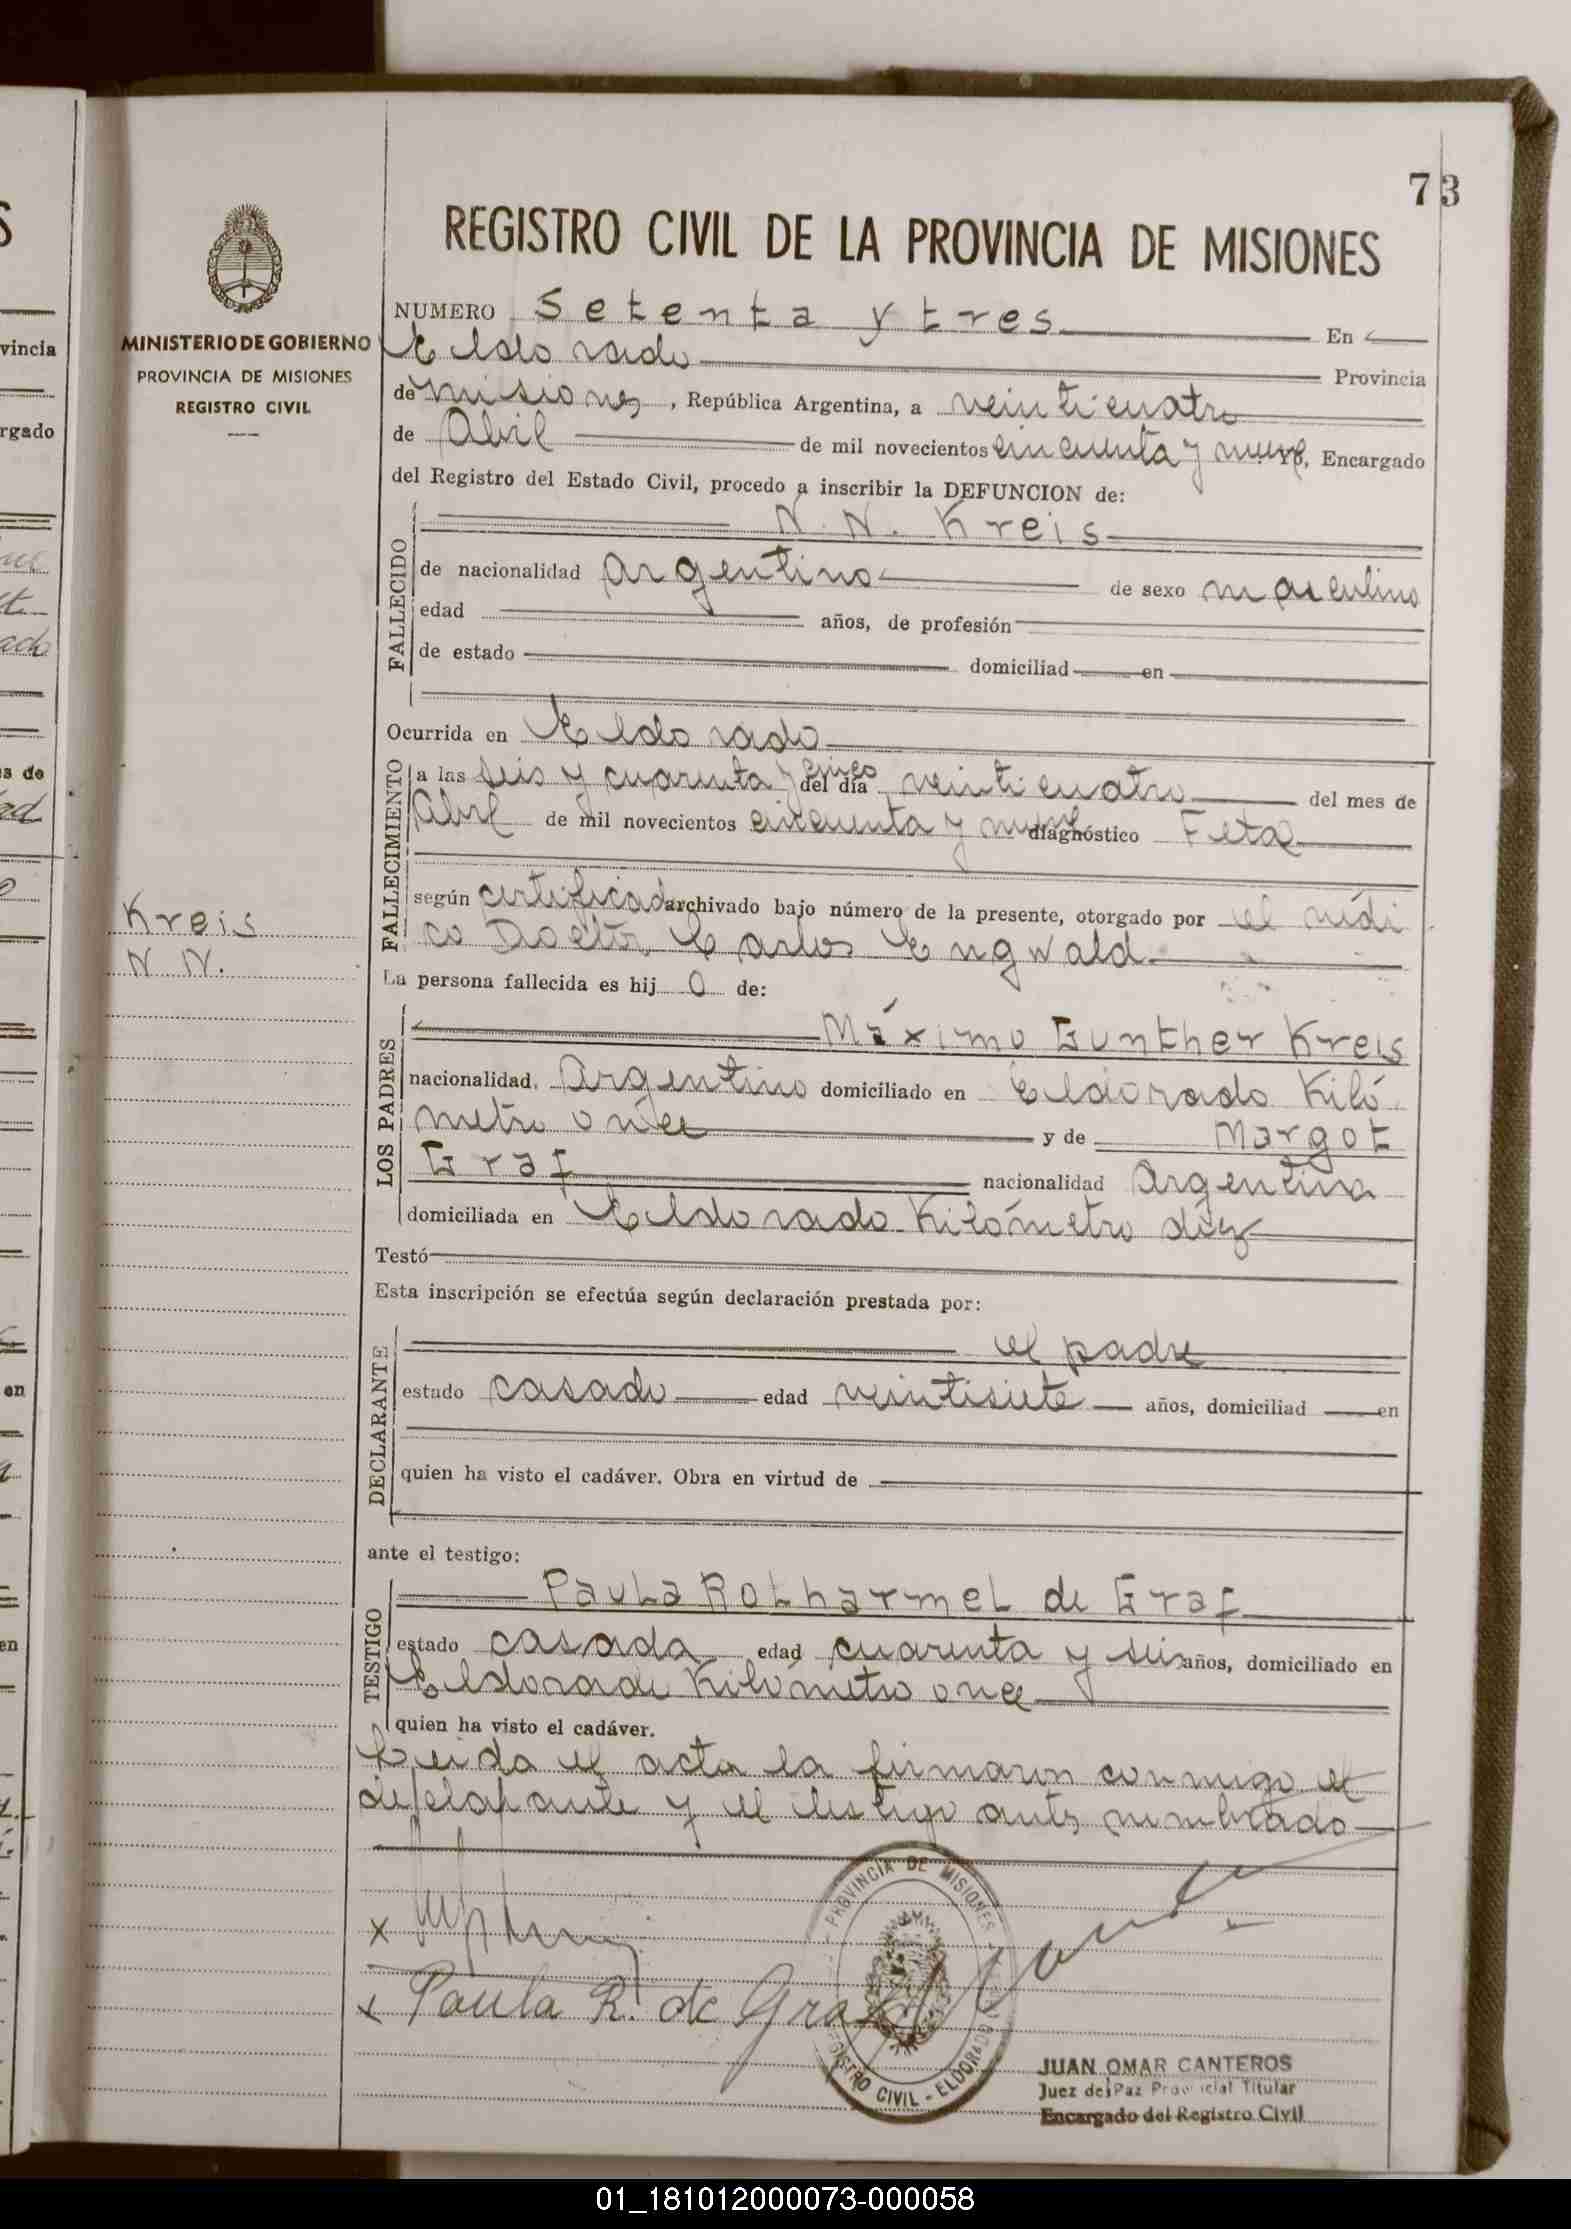 73
REGISTRO CIVIL DE LA PROVINCIA DE MISIONES
MINISTERIO DE GOBIERNO
PROVINCIA DE MISIONES
REGISTRO CIVIL
NUMERO Setenta y tres En
Eldorado Provincia
de Misiones, República Argentina, a veinticuatro
de Abril de mil novecientos cincuenta y nueve Yo, Encargado
del Registro del Estado Civil, procedo a inscribir la DEFUNCION de:
N. N. Kreis
FALLECIDO
de nacionalidad Argentino de sexo masculino
edad años, de profesión
de estado domiciliad en
Ocurrida en Eldorado
FALLECIMIENTO
a las seis y cuarenta y cinco del día veinticuatro del mes de
Abril de mil novecientos cincuenta y nueve diagnóstico Fetal
según certificado archivado bajo número de la presente, otorgado por el médi
co Doctor Carlos Engwald
Kreis
N N.
La persona fallecida es hij o de:
LOS PADRES
Máximo Gunther Kreis
nacionalidad, Argentino domiciliado en Eldorado Kiló
metro once y de Margot
Graf nacionalidad Argentina
domiciliada en Eldorado Kilómetro diez
Testó
Esta inscripción se efectúa según declaración prestada por:
DECLARANTE
el padre
estado casado edad veintisiete años, domiciliad en
quien ha visto el cadáver. Obra en virtud de
ante el testigo:
TESTIGO
Paula Rotharmel de Graf
estado casada edad cuarenta y seis años, domiciliado en
Eldorado Kilómetro once
quien ha visto el cadáver.
Leida el acta la firmaron conmigo el
declarante y el testigo antes nombrado
x
x Paula R. de Graf
PROVINCIA DE MISIONES
REGISTRO CIVIL - ELDORADO
JUAN OMAR CANTEROS
Juez de Paz Provincial Titular
Encargado del Registro Civil
01_181012000073-000058